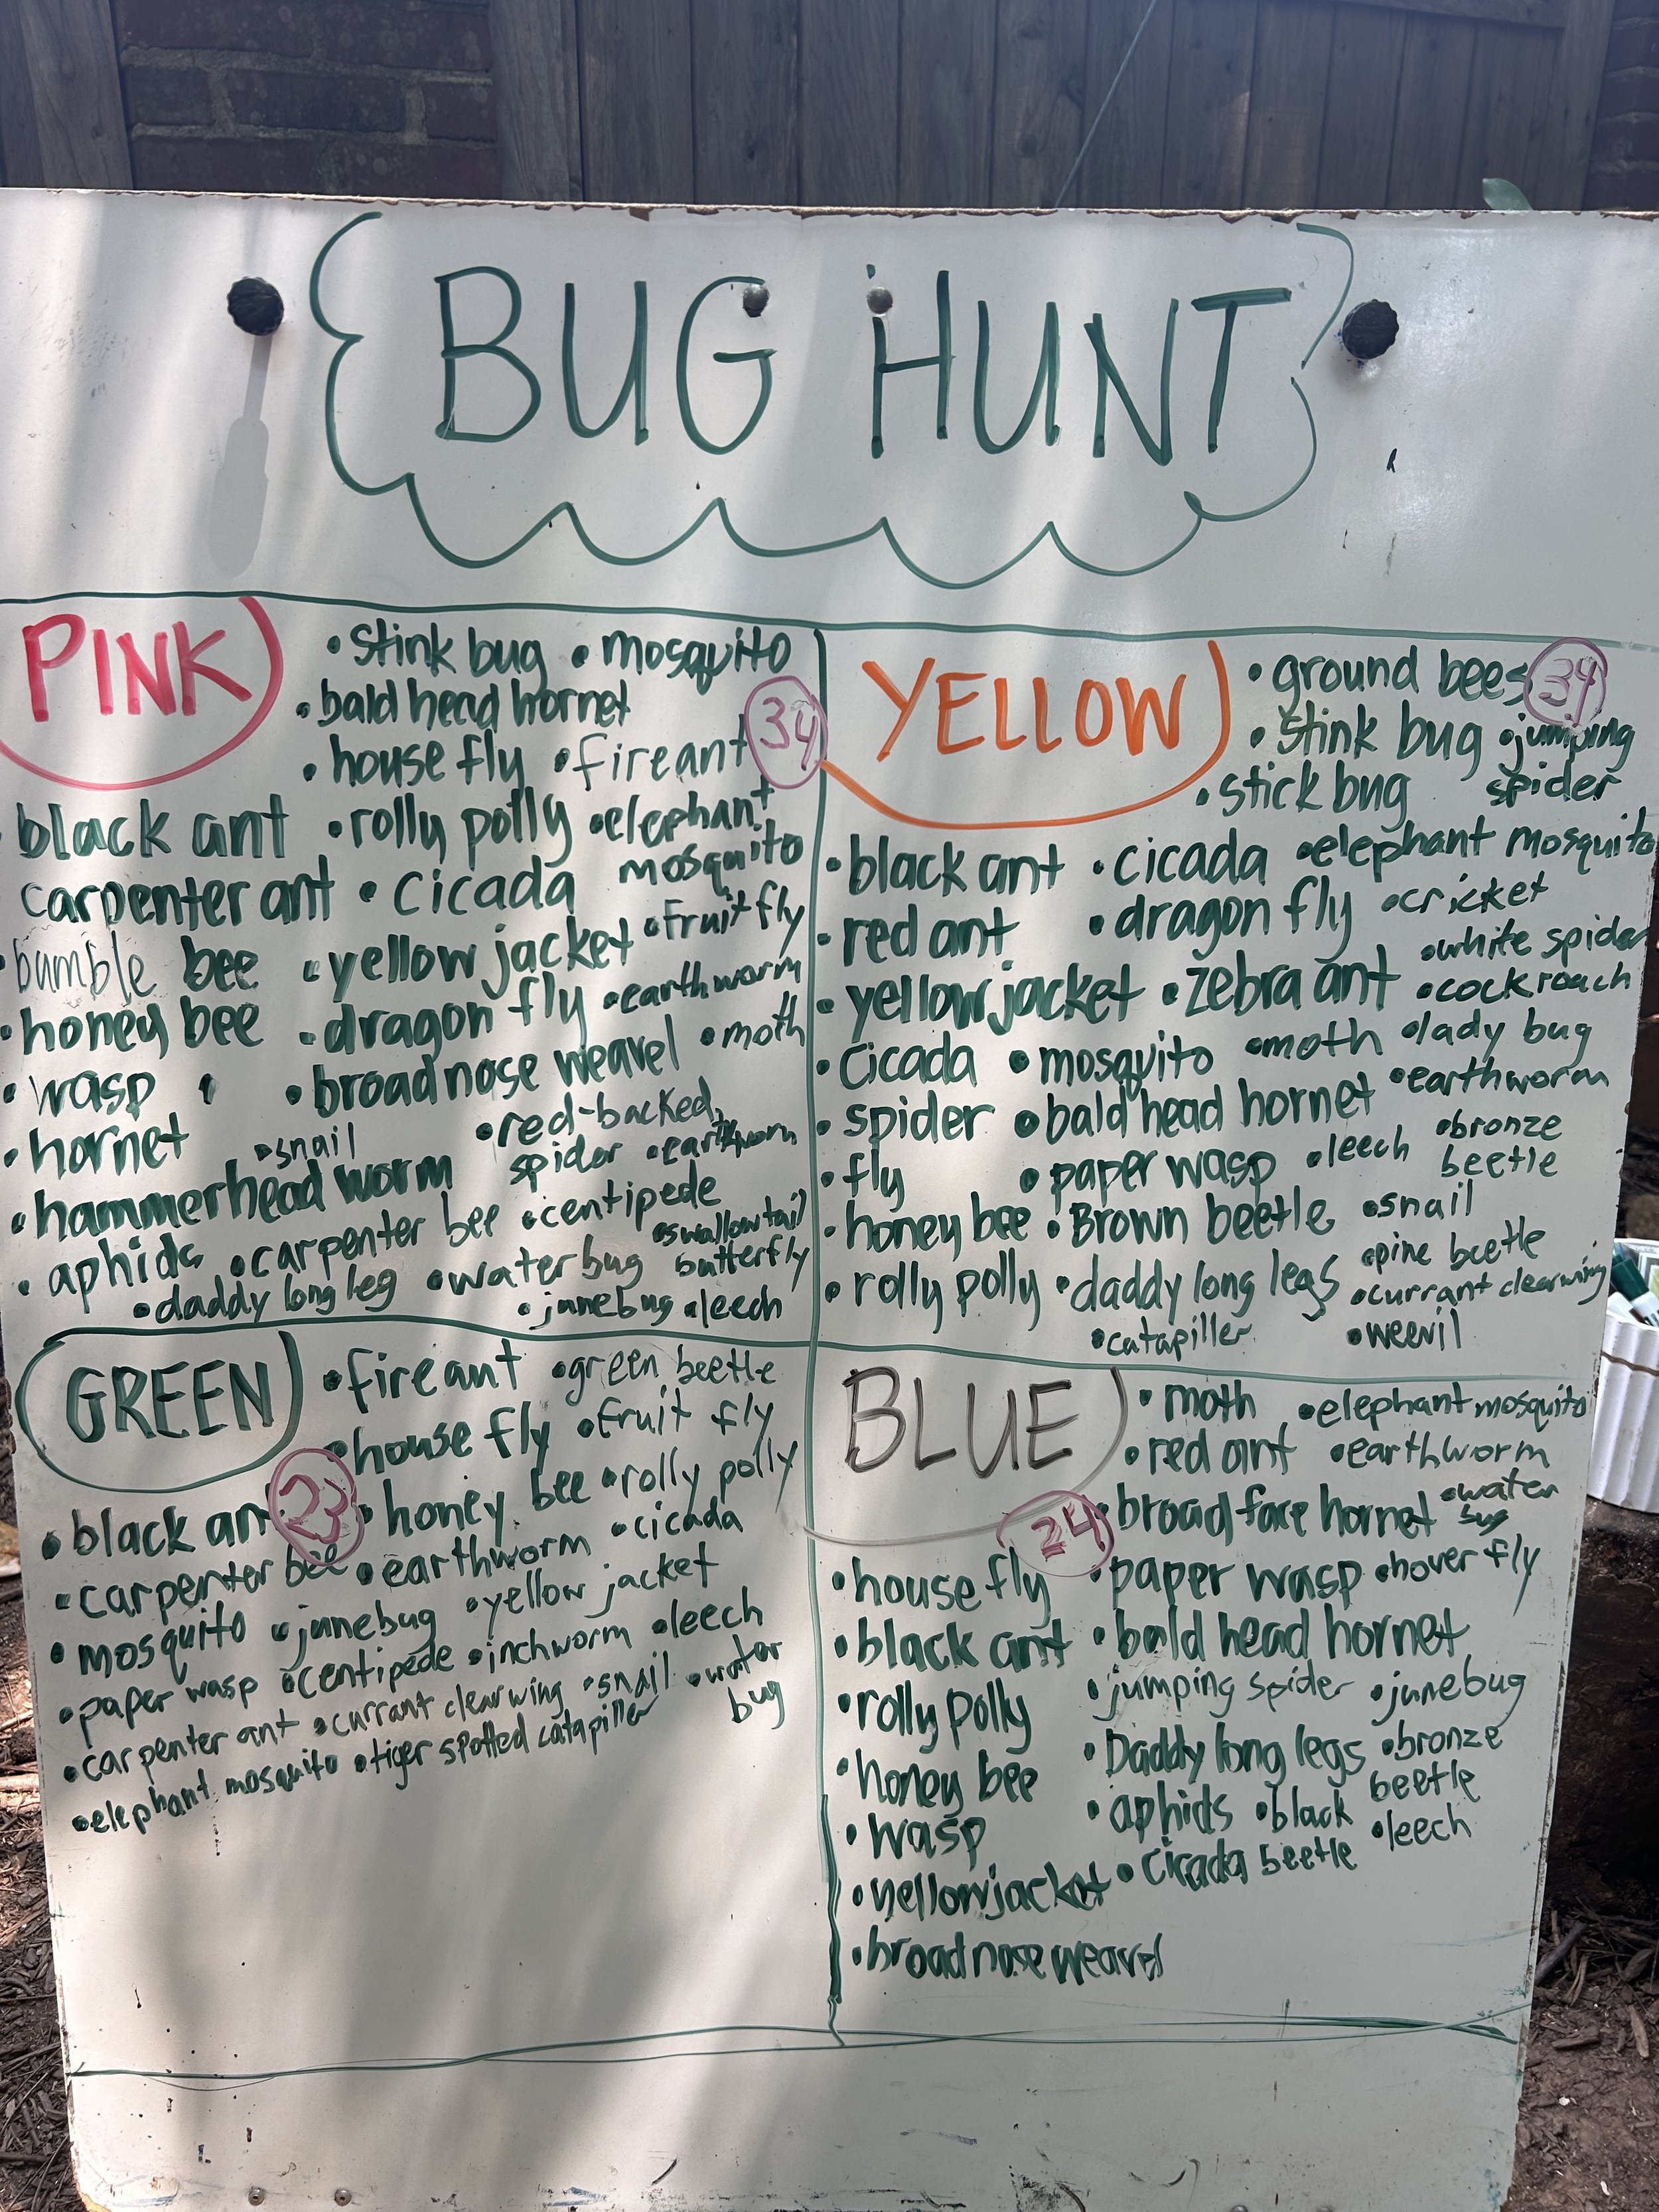 BUG HUNT
PINK
• stink bug • mosquito
• bald head hornet
34
• house fly • fire ant
black ant • rolly polly • elephant
mosquito
carpenter ant • cicada
• bumble bee • yellow jacket • fruit fly
• honey bee • dragon fly • earthworm
• wasp • broad nose weavel • moth
• hornet • snail • red-backed
spider • earthworm
• hammerhead worm • centipede
• aphids • carpenter bee • swallowtail
butterfly
• daddy long leg • water bug
• junebug • leech
YELLOW
• ground bees 34
• stink bug • jumping
spider
• stick bug
• black ant • cicada • elephant mosquito
• red ant • dragon fly • cricket
• white spider
• yellow jacket • zebra ant • cockroach
• cicada • mosquito • moth • lady bug
• spider • bald head hornet • earthworm
• fly • paper wasp • leech • bronze
beetle
• honey bee • Brown beetle • snail
• pine beetle
• rolly polly • daddy long legs • currant clearwing
• catapiller • weevil
GREEN
• fire ant • green beetle
• house fly • fruit fly
23
• black ant • honey bee • rolly polly
• carpenter bee • earthworm • cicada
• mosquito • junebug • yellow jacket
• paper wasp • centipede • inchworm • leech
• carpenter ant • currant clearwing • snail • water
bug
• elephant mosquito • tiger spotted catapiller
BLUE
• moth • elephant mosquito
• red ant • earthworm
24
• broad face hornet • water
bug
• house fly • paper wasp • hover fly
• black ant • bald head hornet
• rolly polly • jumping spider • junebug
• honey bee • Daddy long legs • bronze
beetle
• wasp • aphids • black
beetle • leech
• yellow jacket • cicada
• broad nose weavel